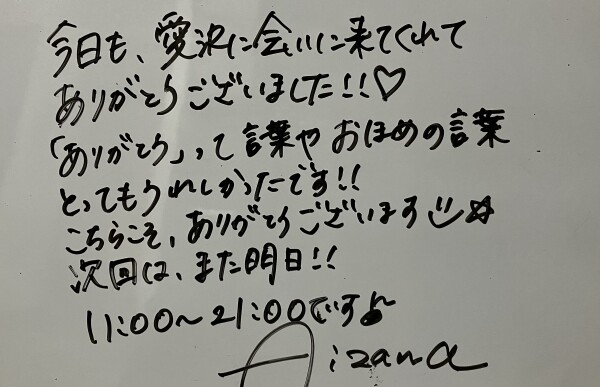 今日も、愛沢に会いに来てくれて
ありがとうございました!!♡
「ありがとう」って言葉やおほめの言葉
とってもうれしかったです!!
こちらこそ、ありがとうございます
次回は、また明日!!
11:00~21:00です♪
Aizawa